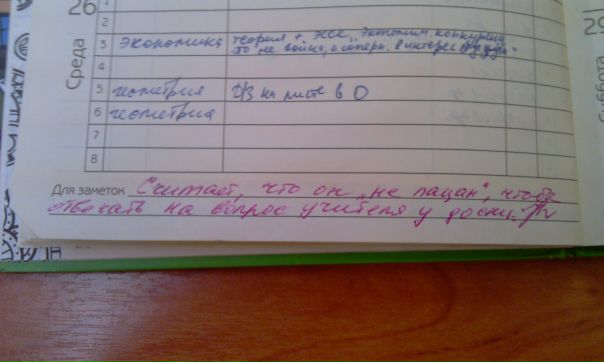 26
Среда
1
2
3 экономика теория + эссе „Экономич. конкуренция
то не война, а соперн. в интересе друг друга"
4
5 геометрия д/з на листе в
6 геометрия
7
8
Для заметок Считает, что он „не пацан", чтобы
отвечать на вопрос учителя у доски.
29
суббота